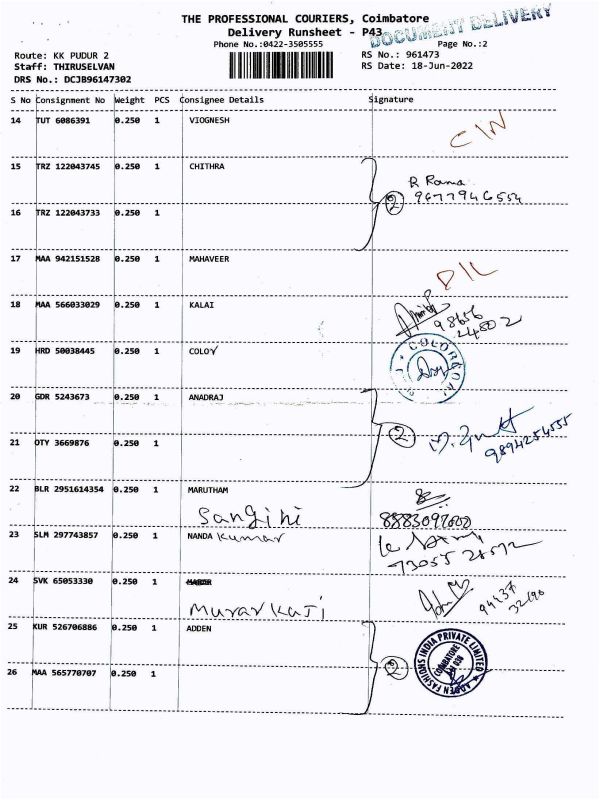 THE PROFESSIONAL COURIERS, Coimbatore
Delivery Runsheet - P43
DOCUMENT DELIVERY
Phone No.:0422-3505555
Page No.:2
Route: KK PUDUR 2
RS No.: 961473
Staff: THIRUSELVAN
RS Date: 18-Jun-2022
DRS No.: DCJB96147302
S No Consignment No Weight PCS Consignee Details Signature
14 TUT 6086391 0.250 1 VIOGNESH
15 TRZ 122043745 0.250 1 CHITHRA
R Rama
2 9677946554
16 TRZ 122043733 0.250 1
17 MAA 942151528 0.250 1 MAHAVEER
D/L
18 MAA 566033029 0.250 1 KALAI
98656
24802
19 HRD 50038445 0.250 1 COLOV
20 GDR 5243673 0.250 1 ANADRAJ
2
9894254555
21 OTY 3669876 0.250 1
22 BLR 2951614354 0.250 1 MARUTHAM
Sangini
23 SLM 297743857 0.250 1 NANDA Kumar
24 SVK 65053330 0.250 1
Murarkaji
25 KUR 526706886 0.250 1 ADDEN
2
ADDEN FASHIONS INDIA PRIVATE LIMITED
COIMBATORE
26 MAA 565770707 0.250 1